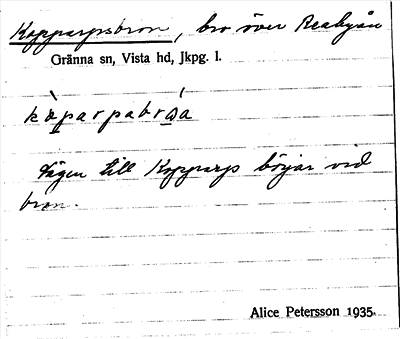 Kopparpsbron, bro över Reabyån
Gränna sn, Vista hd, Jkpg. l.
Vägen till Kopparp börjar vid
bron.
Alice Petersson 1935.